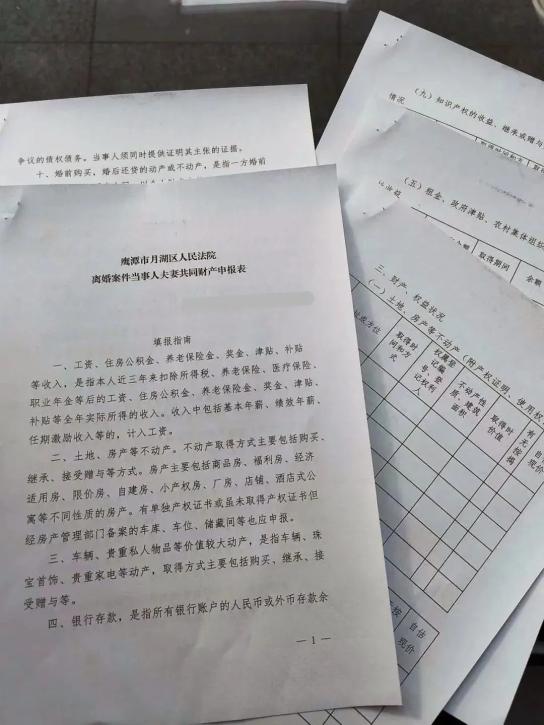 争议的债权债务。当事人须同时提供证明其主张的证据。
十、婚前购买，婚后还贷的动产或不动产，是指一方婚前
鹰潭市月湖区人民法院
离婚案件当事人夫妻共同财产申报表
填报指南
一、工资、住房公积金、养老保险金、奖金、津贴、补贴
等收入，是指本人近三年来扣除所得税、养老保险、医疗保险、
职业年金等后的工资、住房公积金、养老保险金、奖金、津贴、
补贴等全年实际所得的收入。收入中包括基本年薪、绩效年薪、
任期激励收入等的，计入工资。
二、土地、房产等不动产。不动产取得方式主要包括购买、
继承、接受赠与等方式。房产主要包括商品房、福利房、经济
适用房、限价房、自建房、小产权房、厂房、店铺、酒店式公
寓等不同性质的房产。有单独产权证书或虽未取得产权证书但
经房产管理部门备案的车库、车位、储藏间等也应申报。
三、车辆、贵重私人物品等价值较大动产，是指车辆、珠
宝首饰、贵重家电等动产，取得方式主要包括购买、继承、接
受赠与等。
四、银行存款，是指所有银行账户的人民币或外币存款余
— 1 —
（九）知识产权的收益、继承或赠与
情况
（五）租金、政府津贴、农村集体组织
取得期间
余额
三、财产、权益状况
（一）土地、房产等不动产（附产权证明、使用权
取得时间和方式
权属登记编号、登记权利人
不动产性质、建筑面积
取得时价值
有无按揭
自估现价